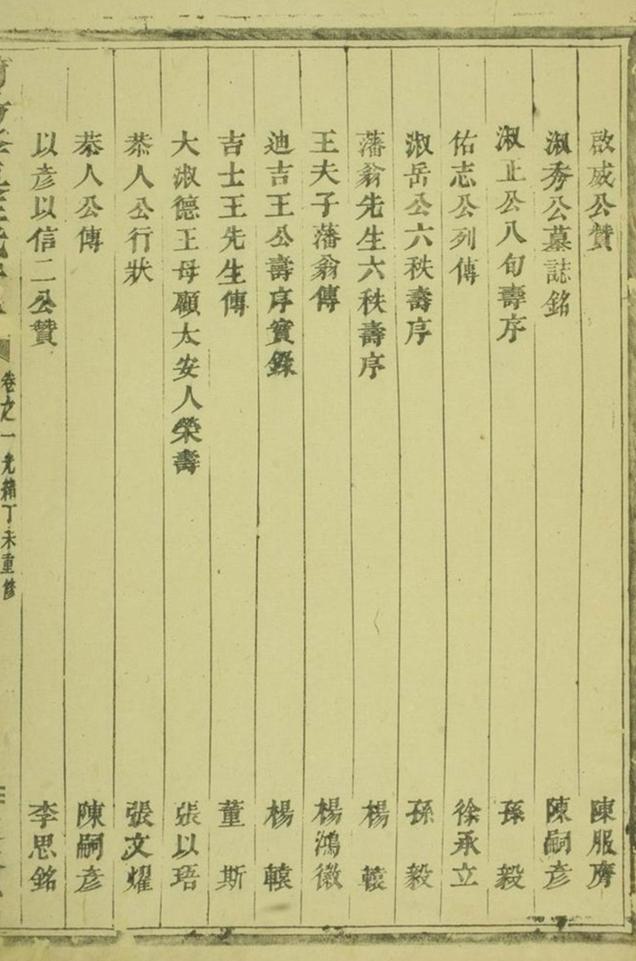 啟威公贊　陳服膺
淑秀公墓誌銘　陳嗣彥
淑止公八旬壽序　孫毅
佑志公列傳　徐承立
淑岳公六秩壽序　孫毅
藩翁先生六秩壽序　楊轅
王夫子藩翁傳　楊鴻徽
迪吉王公壽序實錄　楊轅
吉士王先生傳　董斯
大淑德王母顧太安人榮壽　張以珸
恭人公行狀　張文燿
恭人公傳　陳嗣彥
以彥以信二公贊　李思銘
卷之一　光緒丁未重修